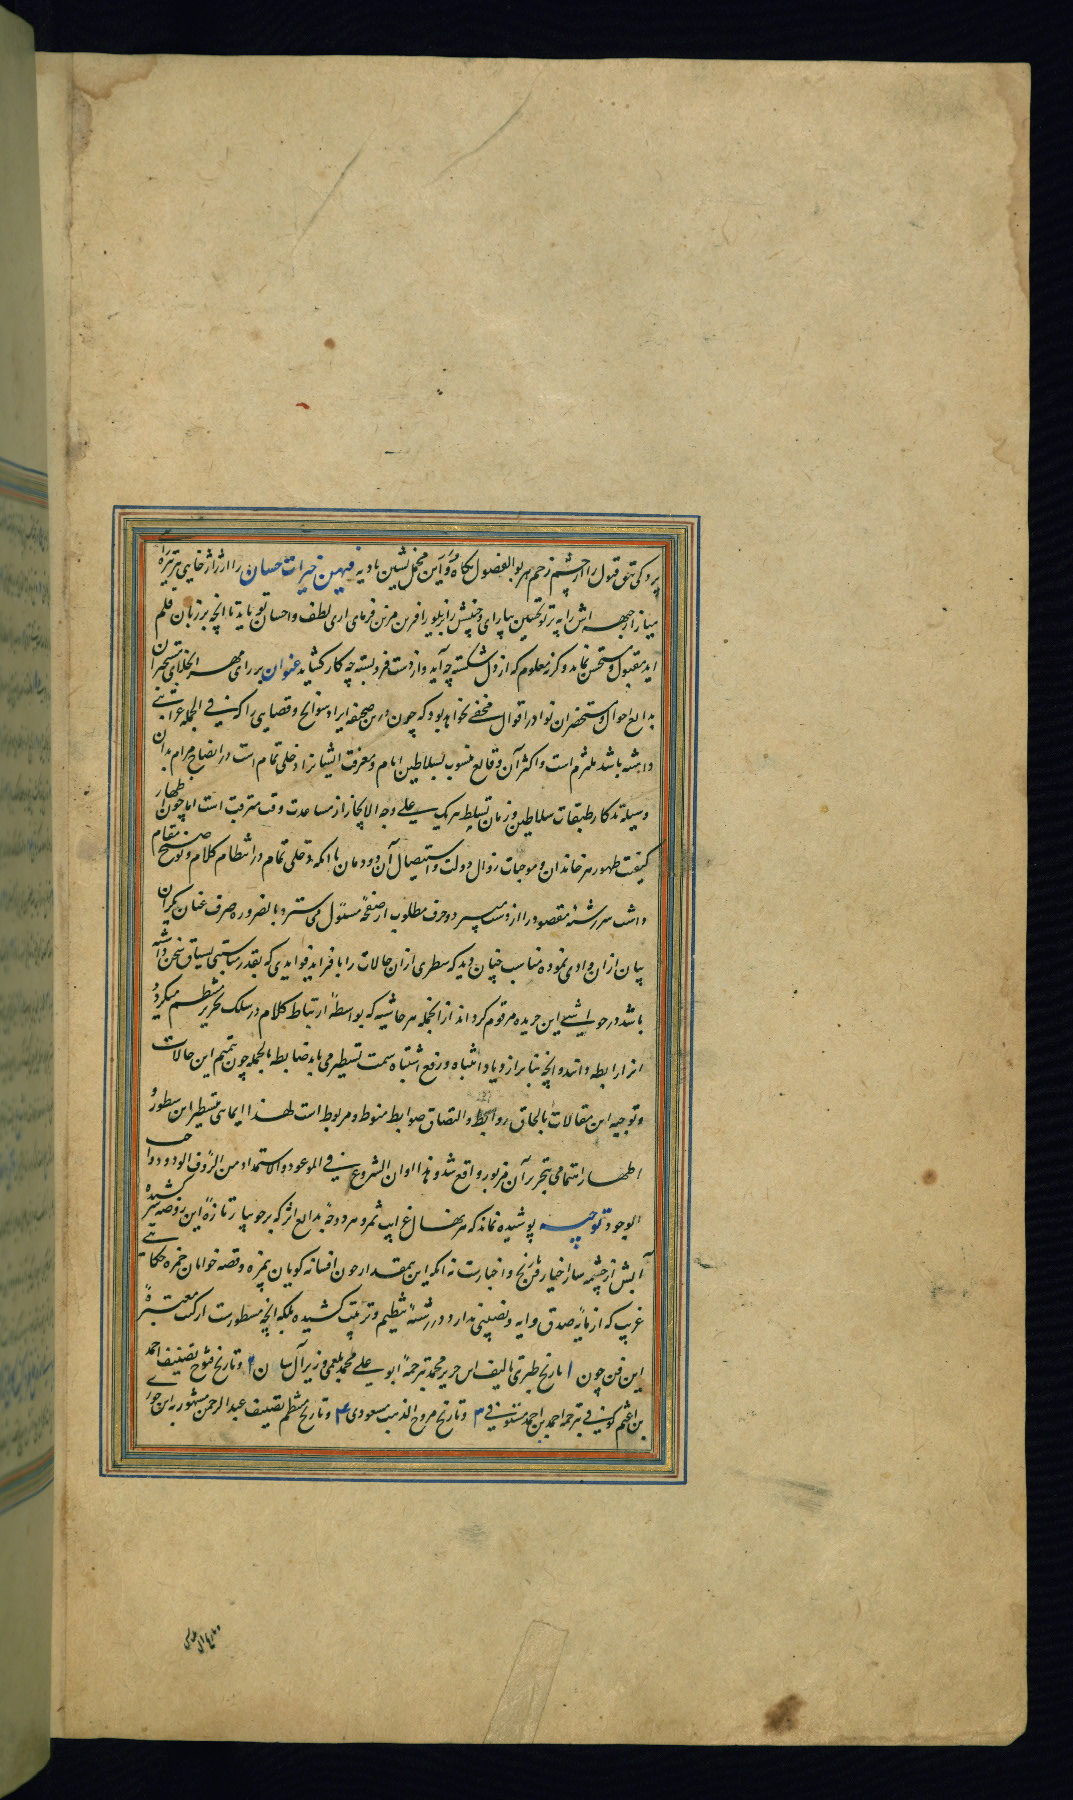 پردکی تتق قبول را از چشم زخم هر بوالفضول نگاه دار و این محمل نشین بادیه فیهن خیرات حسان را از ژاژخایی هر تیره رای
میاز اجبهه اش را بر تو تحسین بیارای و جنبش را بزیور افرین مزین فرمای اری لطف و احسان تو باید تا انچه بر زبان قلم
اید مقبول و مستحسن نماید و کرنه معلوم که از دل شکسته چه آید و از دست فرو بسته چه کار کشاید عنوان بر رای مهر انجلای متبحران
بدایع احوال و مستحضران نوادر اقوال مخفی نخواهد بود که چون درین صحیفه ایراد سوانح و قضایای را که فی الجمله غرابتی
داشته باشد ملتزم است و اکثر آن وقایع منسوب بسلاطین ایام و معرفت ایشانرا دخلی تمام است در ایضاح مرام بدان
وسیله تذکار طبقات سلاطین و زمان تسلط هر یک علی وجه الایجاز از مساعدت وقت مترقب است اما چون اظهار
کیفیت ظهور هر خاندان و موجبات زوال دولت و استیصال آن دودمان با انکه دخلی تمام در انتظام کلام و توضیح مقام
داشت سررشته مقصود را از دست میبرد و حرف مطلوب از صفحه مسئول می سترد بالضروره صرف عنان یکران
بیان از ان وادی نموده مناسب چنان دید که سطری ازان حالات را با فراید فوایدی که بقدر مناسبتی بسیاق سخن داشته
باشد در حواشی این جریده مرقوم کرداند از انجمله هر حاشیه که بواسطه ارتباط کلام در سلک تحریر منتظم میکردد
انرا رابطه داند و انچه بنابر ازدیاد انتباه و رفع اشتباه سمت تسطیر می یابد ضابطه بالجمله چون تتمیم این حالات
و توجیه این مقالات بالحاق روابط و التصاق ضوابط منوط و مربوط است لهذا ایمایی بتسطیر این سطور و
اظهار اهتمامی بتحریر آن مزبور واقع شد و هذا اوان الشروع فی الموعود و الاستمداد من الرؤف الودود واجب
الوجود توجیه پوشیده نماند که هر نهال غرایب ثمر و هر دوحه بدایع اثر که بر جویبار تازه این روضه سر کشیده
آبش از چشمه سار اخبار فرح و اخبارست نه انکه این بمقدار چون افسانه کویان بیمزه و قصه خوانان خمره حکایتی
غریب که از مایه صدق و ایه و نصیبی ندارد در رشته تنظیم و ترتیب کشیده بلکه انچه مسطورست از کتب معتبره
این فن چون ۱ تاریخ طبری تالیف ابن جریر محمد بترجمه ابو علی محمد بلعمی وزیر آل سامان ۲ و تاریخ فتوح تصنیف احمد
بن اعثم کوفی بترجمه احمد بن احمد مستوفی ۳ و تاریخ مروج الذهب مسعودی ۴ و تاریخ منتظم تصنیف عبدالرحمن مشهور به ابن جوزی